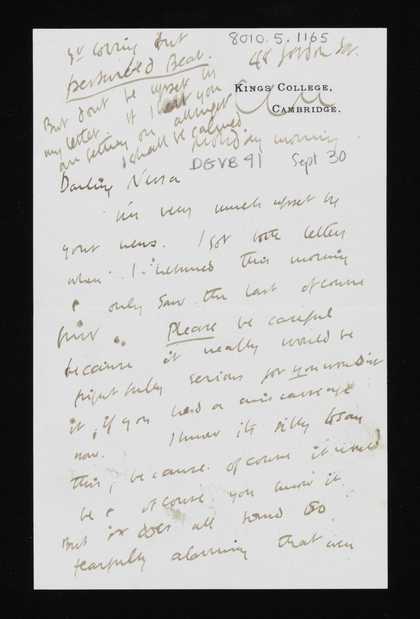 8010.5.1165
Yr loving but
perturbed Bear.
48 Gordon Sq.
KING'S COLLEGE,
CAMBRIDGE.
But dont be upset by
my letter. If I hear you
are getting on allright
I shall be calmed.
Monday morning.
DGVB 91 Sept 30
Darling Nessa
I'm very much upset by
your news. I got both letters
when I returned this morning
& only saw the last of course
first. Please be careful
because it really would be
frightfully serious for you wouldnt
it, if you had a miscarriage
now. I know its silly to say
this, because of course it would
be & of course you know it
But it does all sound so
fearfully alarming that even